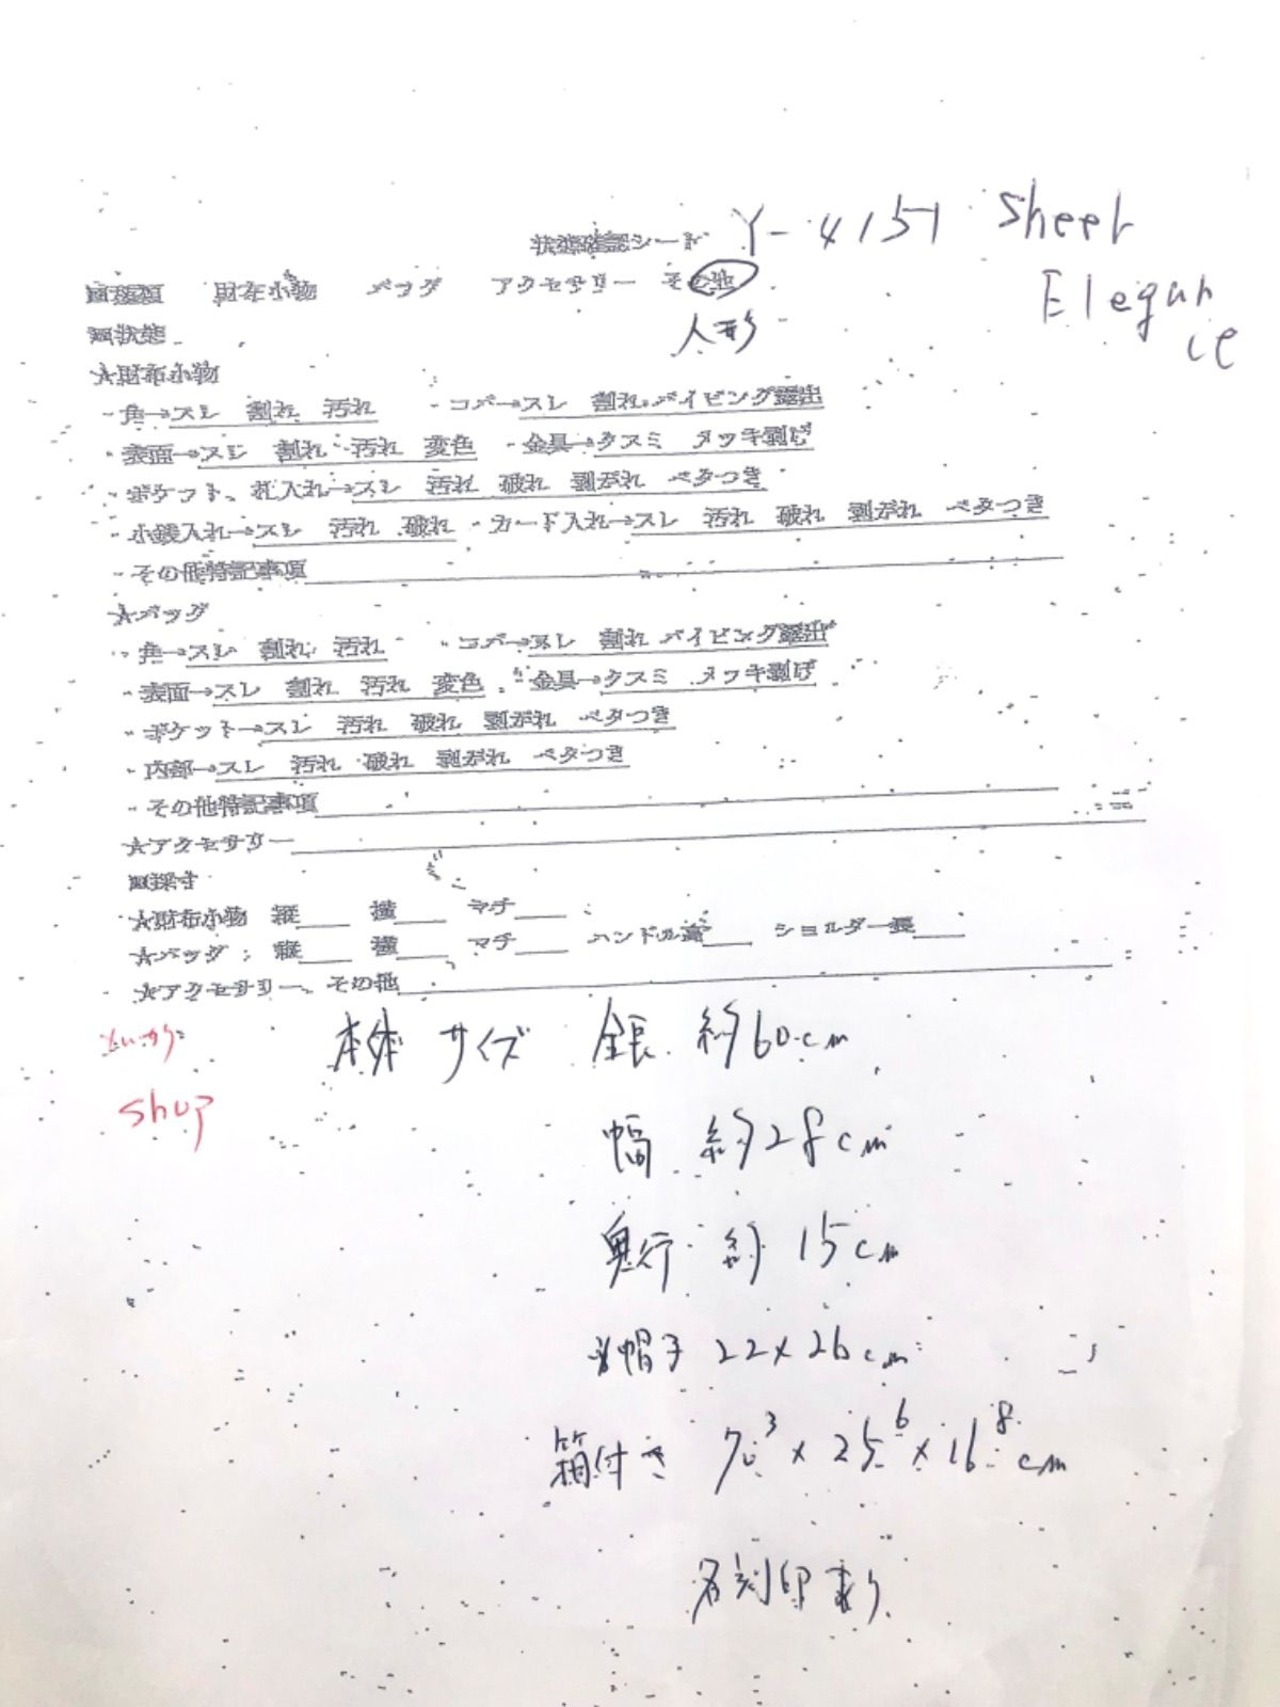 状態確認シート Y-4151 Sheer
Elegan
ce
■種類 財布小物 バッグ アクセサリー その他
人形
■状態
★財布小物
・角→スレ 割れ 汚れ ・コバ→スレ 割れ パイピング露出
・表面→スレ 割れ 汚れ 変色 ・金具→クスミ メッキ剥げ
・ポケット、札入れ→スレ 汚れ 破れ 剥がれ ベタつき
・小銭入れ→スレ 汚れ 破れ ・カード入れ→スレ 汚れ 破れ 剥がれ ベタつき
・その他特記事項
★バッグ
・角→スレ 割れ 汚れ ・コバ→スレ 割れ パイピング露出
・表面→スレ 割れ 汚れ 変色 ・金具→クスミ メッキ剥げ
・ポケット→スレ 汚れ 破れ 剥がれ ベタつき
・内部→スレ 汚れ 破れ 剥がれ ベタつき
・その他特記事項
★アクセサリー
■採寸
★財布小物 縦 横 マチ
★バッグ:縦 横 マチ ハンドル高 ショルダー長
★アクセサリー、その他
本体 サイズ 全長 約60cm
shop
幅 約28cm
奥行 約15cm
※帽子 22×26cm
箱付き 70³×25⁶×16⁸cm
名刻印あり